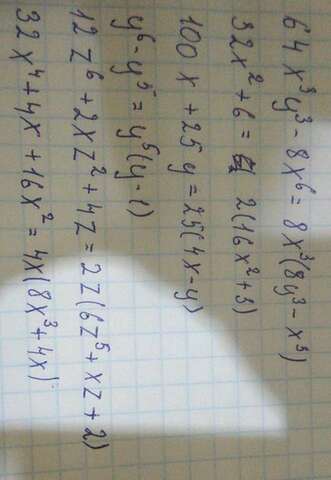 64x³y³-8x⁶=8x³(8y³-x³)
32x²+6= 2(16x²+3)
100x+25y=25(4x-y)
y⁶-y⁵=y⁵(y-1)
12z⁶+2xz²+4z=2z(6z⁵+xz+2)
32x⁴+4x+16x²=4x(8x³+4x)